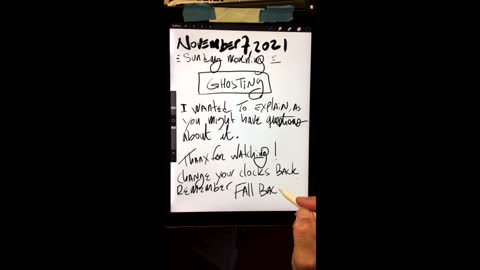 November 7, 2021
= Sunday morning =
GHOSTING
I WANTED TO EXPLAIN, AS
you might have questions
About it.
Thanx for watching!
change your clocks BACK
Remember FALL BAC